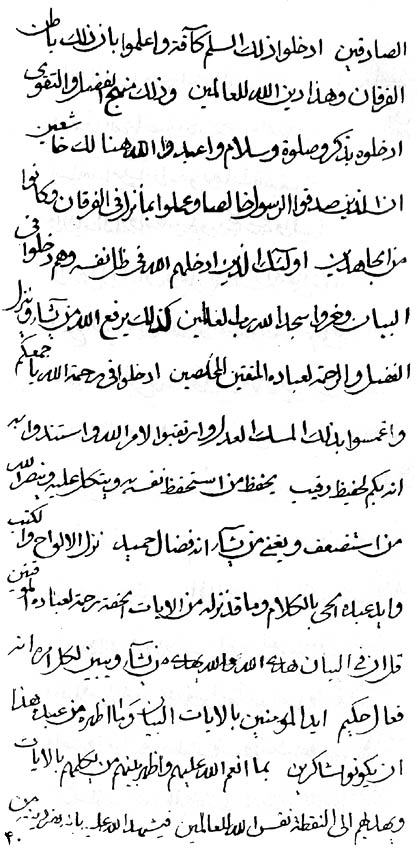 الصادقين ادخلوا ذلك السلم كآفة واعلموا بان ذلك باطن
الفرقان وهذا دين الله للعالمين وذلك منهج الفضل والتقوى
ادخلوه بذكر وصلوة وسلام واعبدوا الله هنالك خاشعين
ان الذين صدقوا الرسول خالصا وعملوا بما نزل فى الفرقان وكانوا
من المجاهدين اولئك الذين ادخلهم الله فى ظل نفسه وهم دخلوا فى
البيان وخروا سجدا لله رب العالمين كذلك يرفع الله من يشآء وينزل
الفضل والرحمة لعباده المتقين المخلصين ادخلوا فى رحمة الله باجمعكم
واغمسوا بذلك المسلك العدل وارتقبوا لامر الله واستندوا به
انه بكم لحفيظ رقيب يحفظ من استحفظ نفسه به ويتكل عليه وينصر الله
من استضعف ويغنى من يشآء انه فضال حميد نزل الالواح والكتب
وايد عباده بالكلام وما قد نزله من الايات رحمة لعباده الموقنين
قل ان فى البيان هدى الله والله يهدى من يشآء ويبين لكل امره انه
فعال حكيم ايد المؤمنين بالايات البيان وما اظهره من عبده هذا
ان يكونوا شاكرين بما انعم الله عليهم واظهر بينهم من يكلمهم بالايات
ويهديهم الى النقطة نفس الله للعالمين فيشهد الله عليه بانه من
۴۰